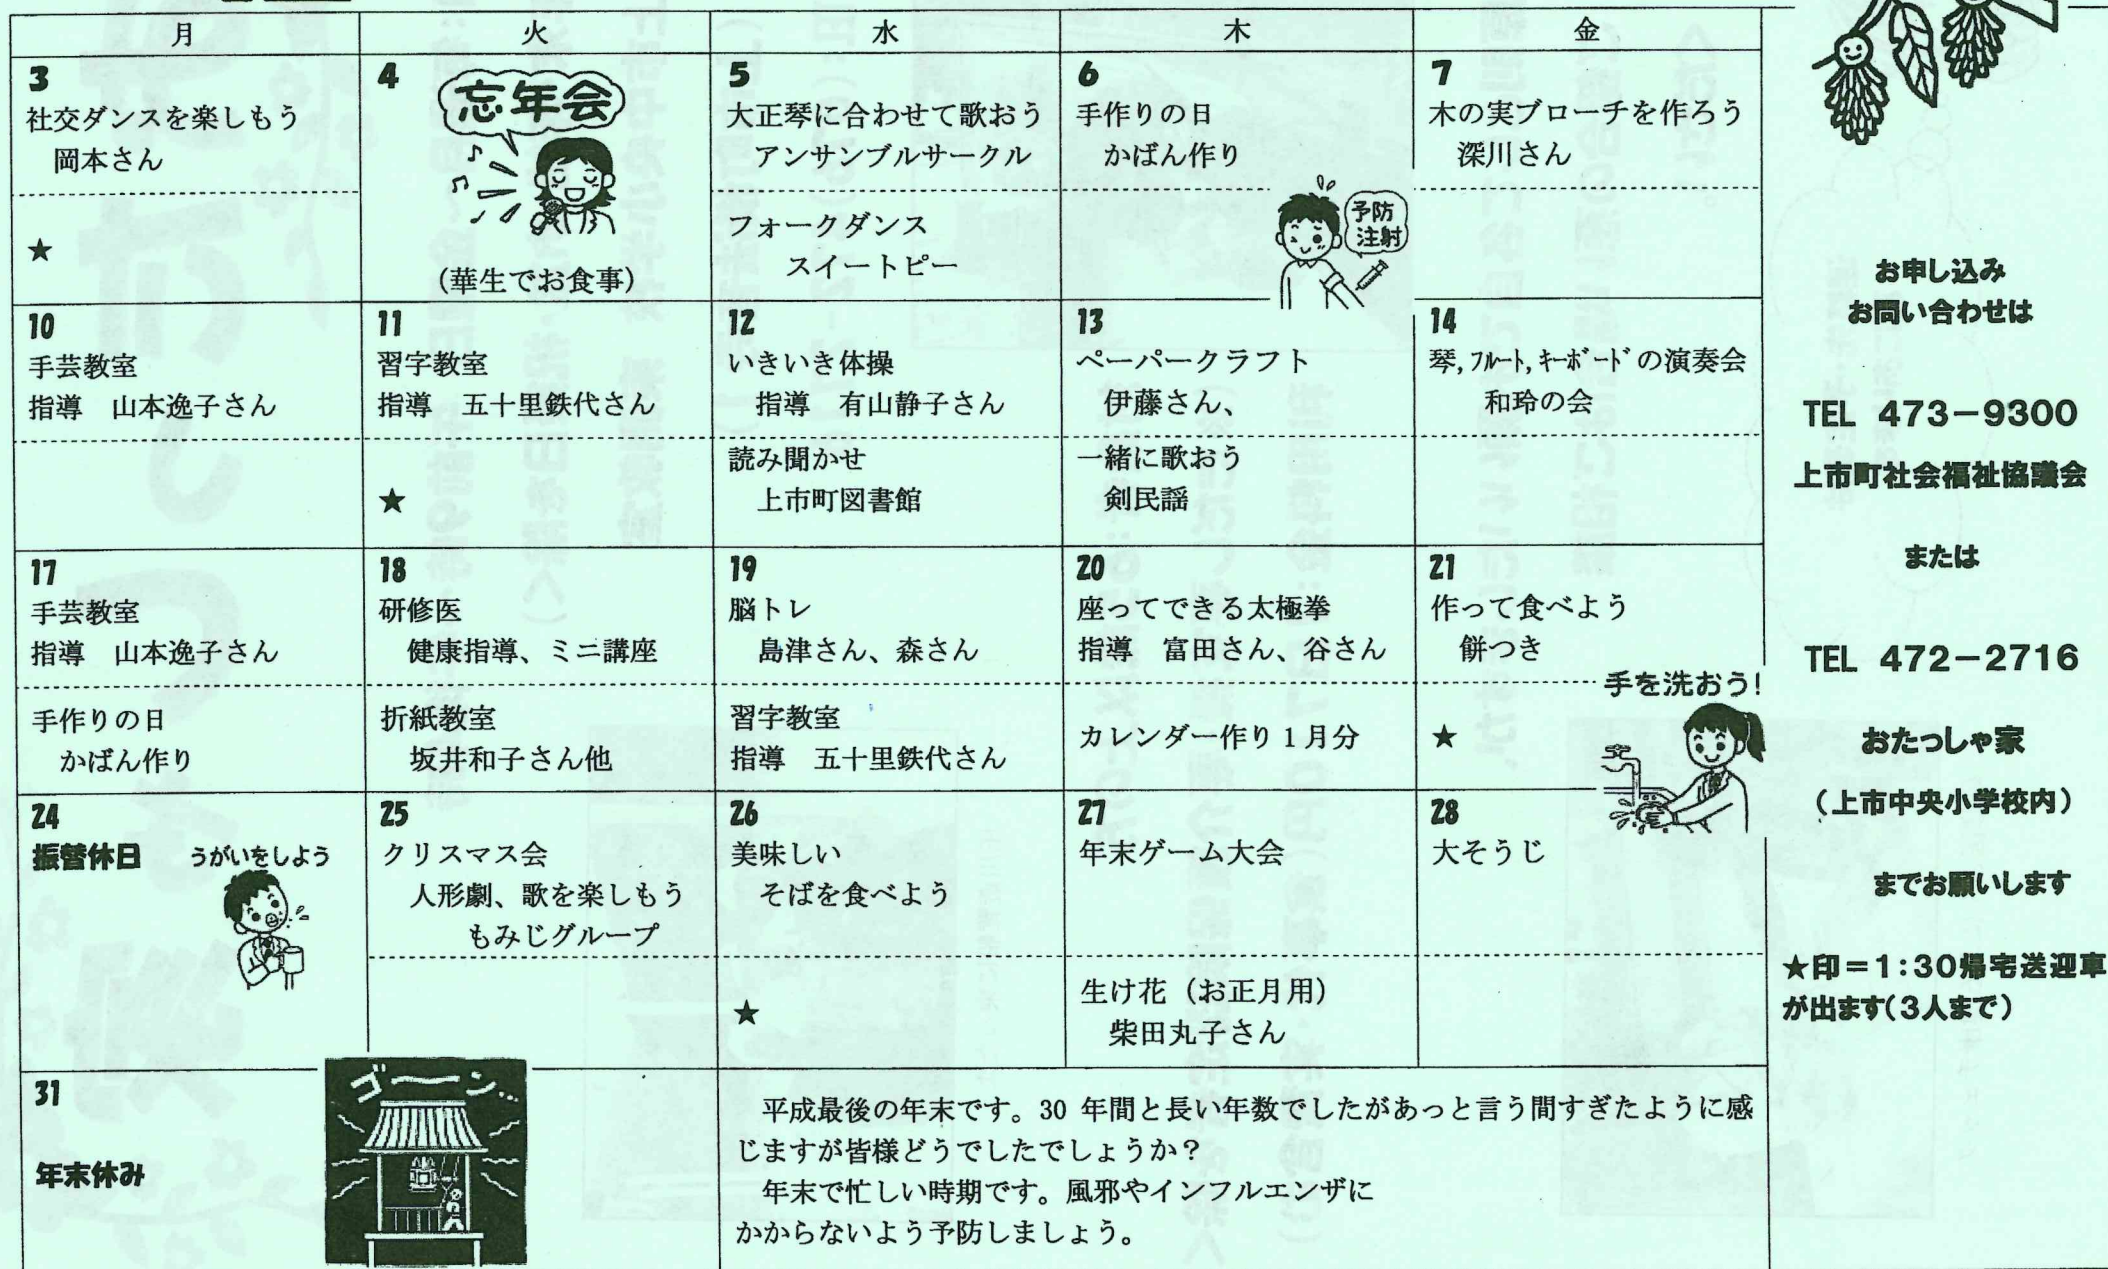 月 火 水 木 金
3
社交ダンスを楽しもう
岡本さん
★
4
忘年会
(華生でお食事)
5
大正琴に合わせて歌おう
アンサンブルサークル
フォークダンス
スイートピー
6
手作りの日
かばん作り
予防
注射
7
木の実ブローチを作ろう
深川さん
10
手芸教室
指導 山本逸子さん
11
習字教室
指導 五十里鉄代さん
★
12
いきいき体操
指導 有山静子さん
読み聞かせ
上市町図書館
13
ペーパークラフト
伊藤さん、
一緒に歌おう
剣民謡
14
琴,フルート,キーボードの演奏会
和玲の会
17
手芸教室
指導 山本逸子さん
手作りの日
かばん作り
18
研修医
健康指導、ミニ講座
折紙教室
坂井和子さん他
19
脳トレ
島津さん、森さん
習字教室
指導 五十里鉄代さん
20
座ってできる太極拳
指導 富田さん、谷さん
カレンダー作り1月分
21
作って食べよう
餅つき
手を洗おう!
★
24
振替休日 うがいをしよう
25
クリスマス会
人形劇、歌を楽しもう
もみじグループ
26
美味しい
そばを食べよう
★
27
年末ゲーム大会
生け花(お正月用)
柴田丸子さん
28
大そうじ
31
年末休み
ゴーン…
平成最後の年末です。30 年間と長い年数でしたがあっと言う間すぎたように感
じますが皆様どうでしたでしょうか?
年末で忙しい時期です。風邪やインフルエンザに
かからないよう予防しましょう。
お申し込み
お問い合わせは
TEL 473-9300
上市町社会福祉協議会
または
TEL 472-2716
おたっしゃ家
(上市中央小学校内)
までお願いします
★印=1:30帰宅送迎車
が出ます(3人まで)